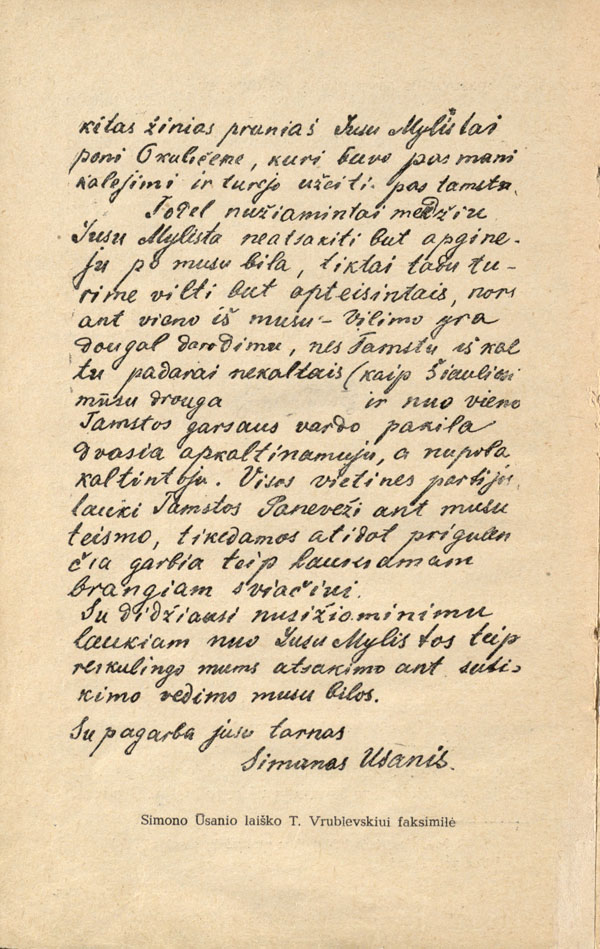 kitas žinias praniaš Jusu Mylistai
poni Okuličene, kuri buvo pas mani
kalejimi ir turejo užeiti pas tamstu.
Todel nužiamintai meldžiu
Jusu Mylista neatsakiti but apgine-
ju po musu bila, tiktai tadu tu-
rime vilti but apteisintais, nors
ant vieno iš musu - Vilimo yra
dougal darodimu, nes Tamstu iš kal
tu padarai nekaltais (kaip Šiauliusi
mūsu drouga ir nuo vieno
Tamstos garsaus vardo pakila
dvasia apkaltinamuju, a nupola
kaltintoju. Visos vietines partiju
lauki Tamstos Paneveži ant musu
teismo, tikedamos atidot prigulen
čia garbia teip laukiamam
brangiam sviačiui.
Su didžiausi nusižiominimu
laukiam nuo Jusu Mylistos teip
reikulingo mums atsakimo ant suti-
kimo vedimo musu bilos.
Su pagarba jusu tarnas
Simanas Usanis.
Simono Ūsanio laiško T. Vrublevskiui faksimilė